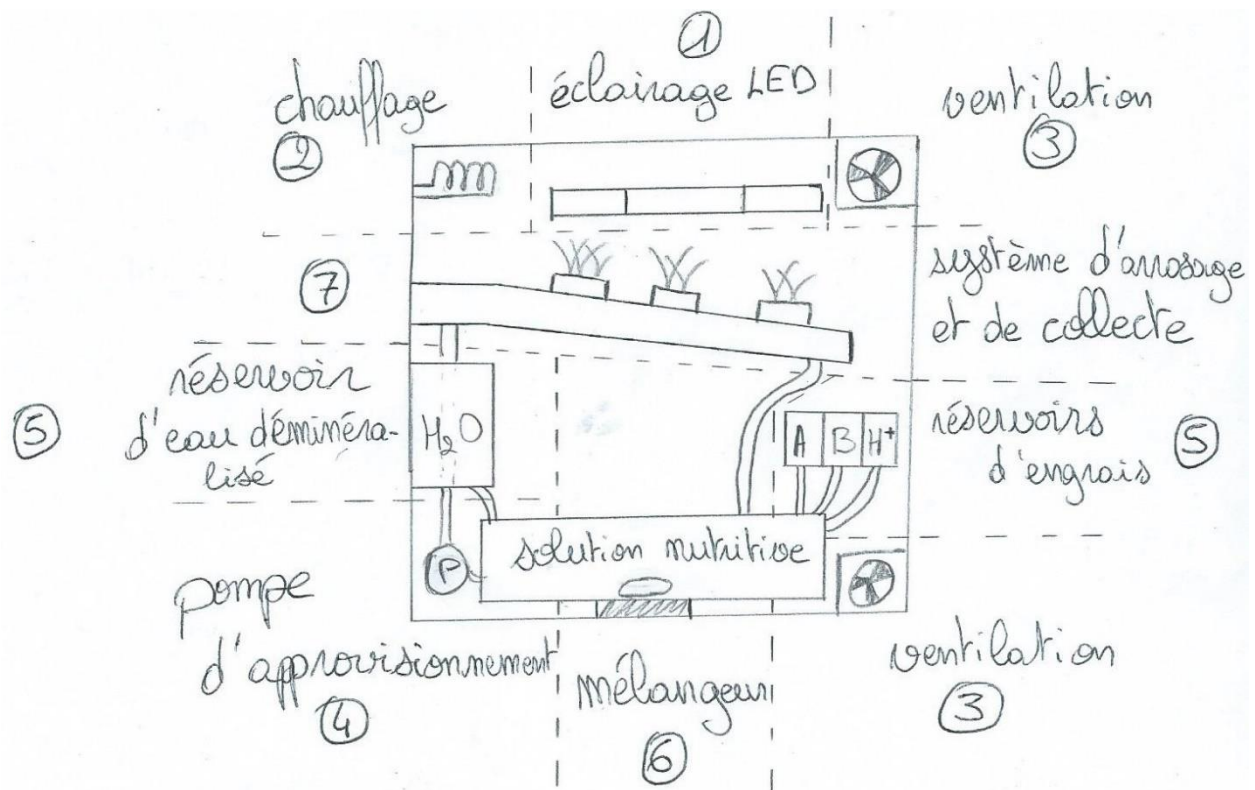 ①
chauffage
②
éclairage LED
ventilation
③
⑦
système d'arrosage
et de collecte
réservoir
d'eau déminéra-
lisé
⑤
H₂O
A B H⁺
réservoirs
d'engrais
⑤
solution nutritive
P
pompe
d'approvisionnement
④
mélangeur
⑥
ventilation
③